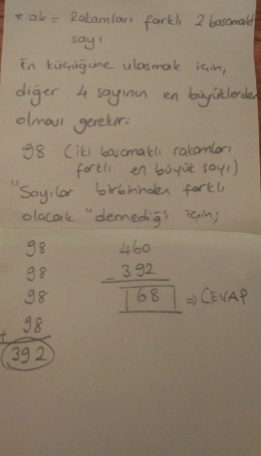 * ab = Rakamları farklı 2 basamaklı
sayı
En küçüğüne ulaşmak için,
diğer 4 sayının en büyüklerden
olması gerekir.
98 (iki basamaklı rakamları
farklı en büyük sayı)
"Sayılar birbirinden farklı
olacak" demediği için;
98 460
98 - 392
98 68 => CEVAP
+ 98
392